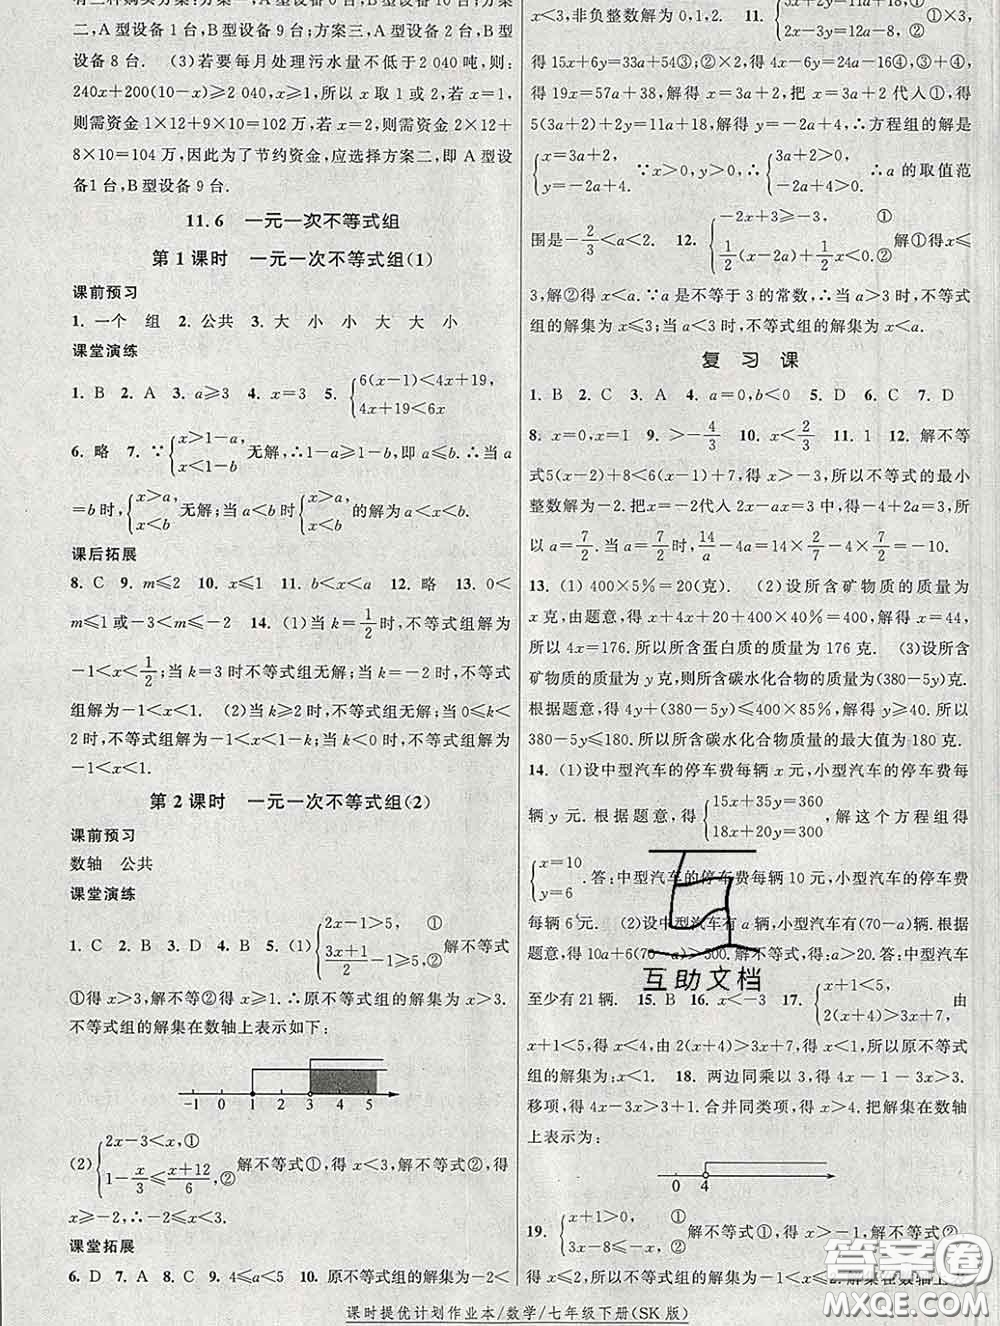 有三种购买方案:方案一,A型设备0台,B型设备10台;方案
二,A型设备1台,B型设备9台;方案三,A型设备2台,B型
设备8台. (3)若要每月处理污水量不低于2 040吨,则:
240x+200(10-x)≥2 040,x≥1,所以x取1或2,若x=1,
则需资金1×12+9×10=102万,若x=2,则需资金2×12+
8×10=104万,因此为了节约资金,应选择方案二,即A型设
备1台,B型设备9台.
11.6 一元一次不等式组
第1课时 一元一次不等式组(1)
课前预习
1. 一个 组 2. 公共 3. 大 小 小 大 大 小
课堂演练
1. B 2. A 3. a≥3 4. x=3 5. {6(x-1)<4x+19, 4x+19<6x
6. 略 7. ∵{x>1-a, x<1-b 无解,∴1-a≥1-b,即a≤b.∴当a
=b时,{x>a, x<b 无解;当a<b时{x>a, x<b 的解为a<x<b.
课后拓展
8. C 9. m≤2 10. x≤1 11. b<x<a 12. 略 13. 0<
m≤1或-3<m≤-2 14. (1)当k=1/2时,不等式组解为
-1<x<1/2;当k=3时不等式组无解;当k=-2时,不等式
组解为-1<x<1. (2)当k≥2时,不等式组无解.当0≤k<
2时,不等式组解为-1<x<1-k;当k<0时,不等式组解为
-1<x<1.
第2课时 一元一次不等式组(2)
课前预习
数轴 公共
课堂演练
1. C 2. B 3. D 4. B 5. (1){2x-1>5, ① (3x+1)/2-1≥5, ② 解不等式
①得x>3,解不等②得x≥3.∴原不等式组的解集为x>3.
不等式组的解集在数轴上表示如下:
-1 0 1 2 3 4 5
(2){2x-3<x,① 1-x/3≤(x+12)/6,② 解不等式①,得x<3,解不等式②,得
x≥-2,∴-2≤x<3.
课堂拓展
6. D 7. A 8. C 9. 4≤a<5 10. 原不等式组的解集为-2<
x<3,非负整数解为0,1,2. 11. {5x+2y=11a+18,① 2x-3y=12a-8,② ①×3,
得15x+6y=33a+54③;②×2,得4x-6y=24a-16④,③+④,
得19x=57a+38,解得x=3a+2,把x=3a+2代人①得
5(3a+2)+2y=11a+18,解得y=-2a+4,∴方程组的解是
{x=3a+2, y=-2a+4. ∵x>0,y>0,∴{3a+2>0, -2a+4>0. ∴a的取值范
围是-2/3<a<2. 12. {-2x+3≥-3, ① 1/2(x-2a)+1/2x<0 ② 解①得x≤
3,解②得x<a.∵a是不等于3的常数,∴当a>3时,不等式
组的解集为x≤3;当a<3时,不等式组的解集为x<a.
复习课
1. B 2. C 3. A 4. a=0,b<0 5. D 6. C 7. D
8. x=0,x=1 9. >-4/3 10. x<2/3 11. 1 12. 解不等
式5(x-2)+8<6(x-1)+7,得x>-3,所以不等式的最小
整数解为-2.把x=-2代人2x-ax=3得-4+2a=3,所
以a=7/2.当a=7/2时,14/a-4a=14×2/7-4×7/2=-10.
13. (1)400×5%=20(克). (2)设所含矿物质的质量为
x克,由题意,得x+4x+20+400×40%=400,解得x=44,
所以4x=176.所以所含蛋白质的质量为176克. (3)设所含
矿物质的质量为y克,则所含碳水化合物的质量为(380-5y)克.
根据题意,得4y+(380-5y)≤400×85%,解得y≥40.所以
380-5y≤180.所以所含碳水化合物的质量的最大值为180克.
14. (1)设中型汽车的停车费每辆x元,小型汽车的停车费每
辆y元.根据题意,得{15x+35y=360 18x+20y=300. 解这个方程组得
{x=10 y=6 .答:中型汽车的停车费每辆10元,小型汽车的停车费
每辆6元. (2)设中型汽车有a辆,小型汽车有(70-a)辆.根据
题意,得10a+6(70-a)>500.解不等式,得:a>20.答:中型汽车
至少有21辆. 15. B 16. x<-3 17. {x+1<5, 2(x+4)>3x+7, 由
x+1<5,得x<4,由2(x+4)>3x+7,得x<1,所以原不等式
组的解集为:x<1. 18. 两边同乘以3,得4x-1>3x+3.
移项,得4x-3x>3+1.合并同类项,得x>4.把解集在数轴
上表示为:
0 4
19. {x+1>0, ① 3x-8≤-x;② 解不等式①,得x>-1,解不等式②,
得x≤2,所以不等式组的解集为-1<x≤2,解集在数轴上表
互助文档
答案圈
MXQE.COM
课时提优计划作业本/数学/七年级下册(SK版)